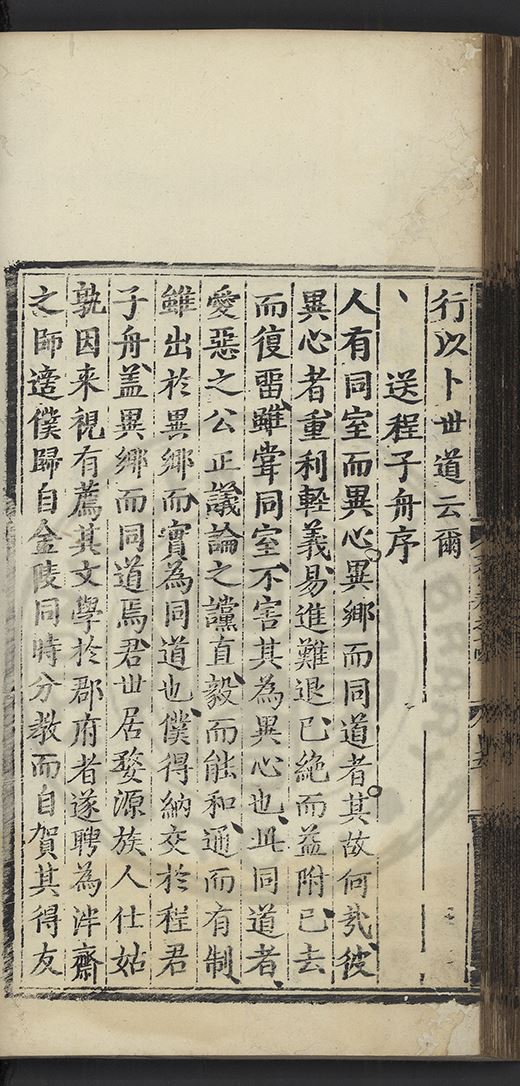 行以卜世道云爾
送程子舟序
人有同室而異心異郷而同道者其故何㢤彼
異心者重利輕義易進難退已絶而益附已去
而復畱雖甞同室不害其為異心也此同道者
愛惡之公正議論之讜直毅而能和通而有制
雖出於異郷而實為同道也僕得納交於程君
子舟盖異郷而同道焉君世居婺源族人仕姑
孰因来視有薦其文學於郡府者遂聘為泮齋
之師適僕歸自金陵同時分教而自賀其得友